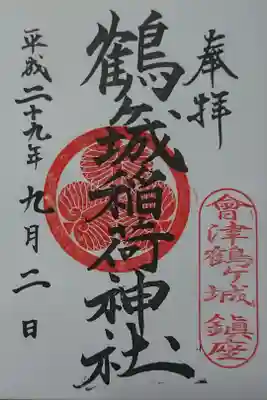 奉拝
會津鶴ヶ城 鎮座
鶴ヶ城稲荷神社
平成二十九年 九月二日